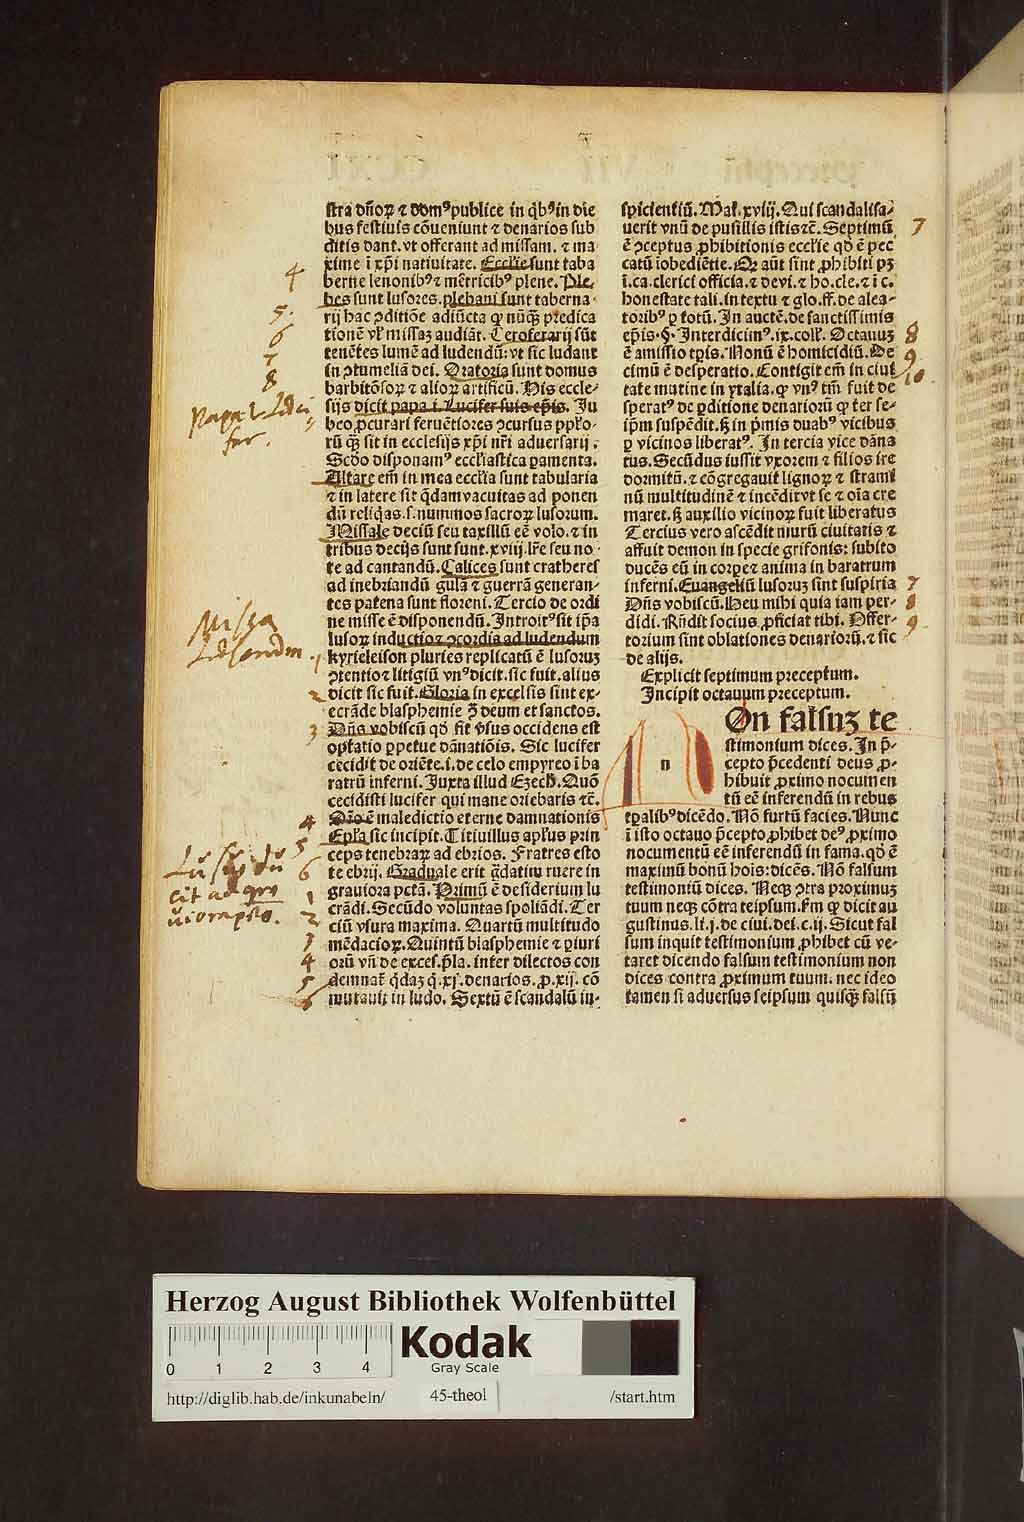 stra dño℞ ⁊ domꝰ publice in q̃bꝰ in die
bus festiuis cõueniunt ⁊ denarios sub
ditis dant. vt offerant ad missam. ⁊ ma
xime ĩ xp̃i natiuitate. Eccl̃ie sunt taba
berne lenonibꝰ ⁊ mẽtricibꝰ plene. Ple-
bes sunt lusores. plebani sunt taberna-
rij hac ꝯditiõe adiũcta ꝙ nũqȝ predica
tionẽ vl̃ missaȝ audiãt. Ceroferarij sũt
tenẽtes lumẽ ad ludendũ: vt sic ludant
in ꝯtumeliã dei. Oratoria sunt domus
barbitõso℞ ⁊ alio℞ artificũ. His eccle-
sijs dicit papa .i. Lucifer suis ep̃is. Ju
beo ꝓcurari feruẽtiores ꝯcursus pp̃lo-
rũ qȝ sit in ecclesijs xp̃i nr̃i aduersarij.
Scd̃o disponamꝰ eccl̃iastica ꝑamenta.
Altare em̃ in mea eccl̃ia sunt tabularia
⁊ in latere sit q̃dam vacuitas ad ponen
dũ reliq̃as .s. nummos sacro℞ lusorum.
Missale deciũ seu taxillũ eẽ volo. ⁊ in
tribus decijs sunt sunt .xviij. lr̃e seu no-
te ad cantandũ. Calices sunt cratheres
ad inebriandũ gulã ⁊ guerrã generan-
tes patena sunt floreni. Tercio de ordi
ne misse ẽ disponendũ. Introitꝰ sit ip̃a
luso℞ inductio ⁊ ꝯcordia ad ludendum
kyrieleison pluries replicatũ ẽ lusoruȝ
ꝯtentio ⁊ litigiũ vnꝰ dicit. sic fuit. alius
dicit sic fuit. Gloria in excelsis sint ex-
ecrãde blasphemie ꝯ̃ deum et sanctos.
Dñs vobiscũ qd̃ fit ṽsus occidens est
optatio ꝑpetue dãnatiõis. Sic lucifer
cecidit de oriẽte .i. de celo empyreo ĩ ba
ratrũ inferni. Juxta illud Ezech̃. Quõ
cecidisti lucifer qui mane oriebaris ⁊c̃.
Or̃o ẽ maledictio eterne damnationis
Epl̃a sic incipit. Titiuillus apl̃us prin
ceps tenebra℞ ad ebrios. Fratres esto
te ebrij. Graduale erit g̃datim ruere in
grauiora pctã. Primũ ẽ desiderium lu
crãdi. Secũdo voluntas spoliãdi. Ter
ciũ vsura maxima. Quartũ multitudo
mẽdacio℞. Quintũ blasphemie ⁊ ꝑiuri
orũ vñ de exces. p̃la. inter dilectos con
demnat̃ q̃daȝ q̃ .xj. denarios .ꝓ .xij. cõ
mutauit in ludo. Sextũ ẽ scandalũ in-
spicientiũ. Mat̃. xviij. Qui scandalisa-
uerit vnũ de pusillis istis ⁊c̃. Septimũ
ẽ ꝯceptus ꝓhibitionis eccl̃ie qd̃ ẽ pec
catũ iobediẽtie. Q℞ aũt sint ꝓhibiti pȝ
ĩ .ca. clerici officia. ⁊ de vi. ⁊ ho. cle. ⁊ ĩ c.
honestate tali. in textu ⁊ glo. ff. de alea-
toribꝰ ꝑ totũ. In auctẽ. de sanctissimis
ep̃is .§. Interdicimꝰ .ix. coll̃. Octauuȝ
ẽ amissio tp̃is. Nonũ ẽ homicidiũ. De
cimũ ẽ desperatio. Contigit em̃ in ciui
tate mutine in ytalia. ꝙ vnꝰ tm̃ fuit de
speratꝰ de ꝑditione denariorũ ꝙ ter se-
ip̃m suspẽdit. sȝ in p̃mis duabꝰ vicibus
ꝑ vicinos liberatꝰ. In tercia vice dãna
tus. Secũdus iussit vxorem ⁊ filios ire
dormitũ. ⁊ cõgregauit ligno℞ ⁊ strami
nũ multitudinẽ ⁊ incẽdit vt se ⁊ oĩa cre
maret. sȝ auxilio vicino℞ fuit liberatus
Tercius vero ascẽdit murũ ciuitatis ⁊
affuit demon in specie grifonis: subito
ducẽs eũ in corpe ⁊ anima in baratrum
inferni. Euangeliũ lusoruȝ sint suspiria
Dñs vobiscũ. Heu mihi quia iam per-
didi. Rñdit socius ꝓficiat tibi. Offer-
torium sint oblationes denariorũ. ⁊ sic
de alijs.
Explicit septimum preceptum.
Incipit octauum preceptum.
n
On falsuȝ te
stimonium dices. In p̃-
cepto p̃cedenti deus ꝓ-
hibuit ꝓximo nocumen
tũ eẽ inferendũ in rebus
tꝑalibꝰ dicẽdo. Nõ furtũ facies. Nunc
ĩ isto octauo p̃cepto ꝓhibet deꝰ ꝓximo
nocumentũ eẽ inferendũ in fama. qd̃ ẽ
maximũ bonũ hois: dicẽs. Nõ falsum
testimoniũ dices. Neqȝ ꝯtra proximuȝ
tuum neqȝ cõtra teipsum. Fm̃ ꝙ dicit au
gustinus. li. j. de ciui. dei. c. ij. Sicut fal
sum inquit testimonium ꝓhibet cũ ve-
taret dicendo falsum testimonium non
dices contra ꝓximum tuum. nec ideo
tamen si aduersus seipsum quisqȝ falsũ
4
5.
6
7
8
Papa
fer.
Missa
1
2
3
4
5
6
1
2
3
4
5
6
7
8
9
10
7
8
9
Herzog August Bibliothek Wolfenbüttel
0 1 2 3 4
Kodak
Gray Scale
http://diglib.hab.de/inkunabeln/ 45-theol /start.htm